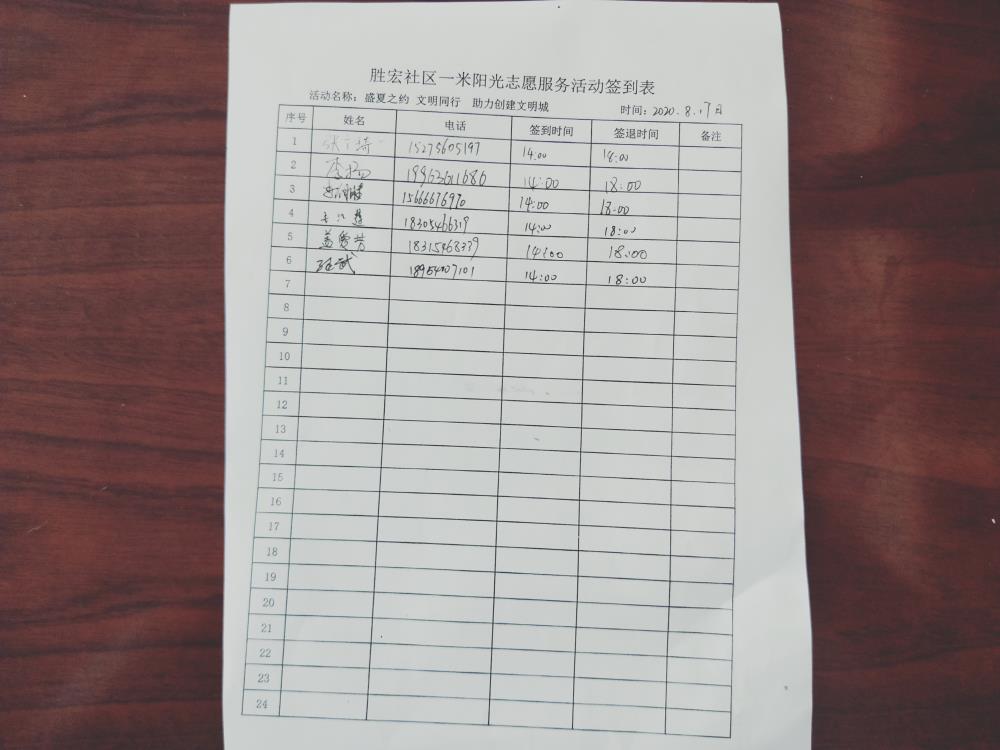 胜宏社区一米阳光志愿服务活动签到表
活动名称：盛夏之约 文明同行 助力创建文明城 时间：2020.8.17日
序号 姓名 电话 签到时间 签退时间 备注
1 15275605197 14:00 18:00
2 李杨 19963611686 14:00 18:00
3 15666676970 14:00 18:00
4 18305466319 14:00 18:00
5 盖爱芳 18315468339 14:00 18:00
6 18954007101 14:00 18:00
7
8
9
10
11
12
13
14
15
16
17
18
19
20
21
22
23
24